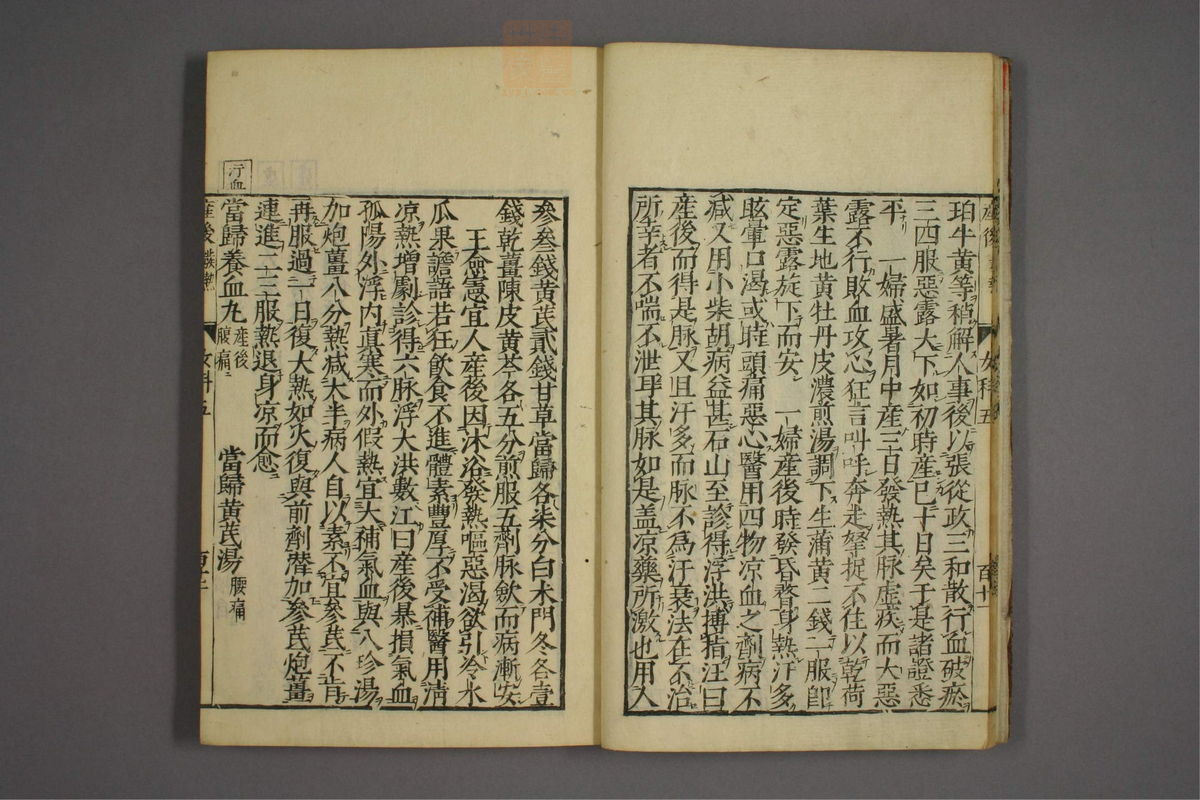 産後
女科五
百十一
珀牛黃等稍解人事後以張從政三和散行血破瘀
三四服惡露大下如初時産已十日矣于是諸證悉
平　一婦盛暑月中産三日發熱其脉虛疾而大惡
露不行敗血攻心狂言叫呼奔走拏捉不住以乾荷
葉生地黃牡丹皮濃煎湯調下生蒲黃二錢一服即
定惡露旋下而安　一婦産後時發昏瞀身熱汗多
眩暈口渴或時頭痛惡心醫用四物凉血之劑病不
减又用小柴胡病益甚石山至診得浮洪搏指汪曰
産後而得是脉又且汗多而脉不爲汗衰法在不治
所幸者不喘不泄耳其脉如是盖凉藥所激也用人
參叄錢黃芪貳錢甘草當歸各柒分白术門冬各壹
錢乾薑陳皮黃芩各五分煎服五劑脉歛而病漸安
王僉憲宜人産後因沐浴發熱嘔惡渴欲引冷水
瓜果譫語若狂飲食不進體素豐厚不受補醫用淸
凉熱增劇診得六脉浮大洪數江曰産後暴損氣血
孤陽外浮內真寒而外假熱宜大補氣血與八珍湯
加炮薑八分熱减大半病人自以素不宜參芪不肯
再服過一日復大熱如火復與前劑潜加參芪炮薑
連進二三服熱退身凉而愈
行血
當歸養血丸 産後腹痛　當歸黃芪湯 腰痛
産後
女科五